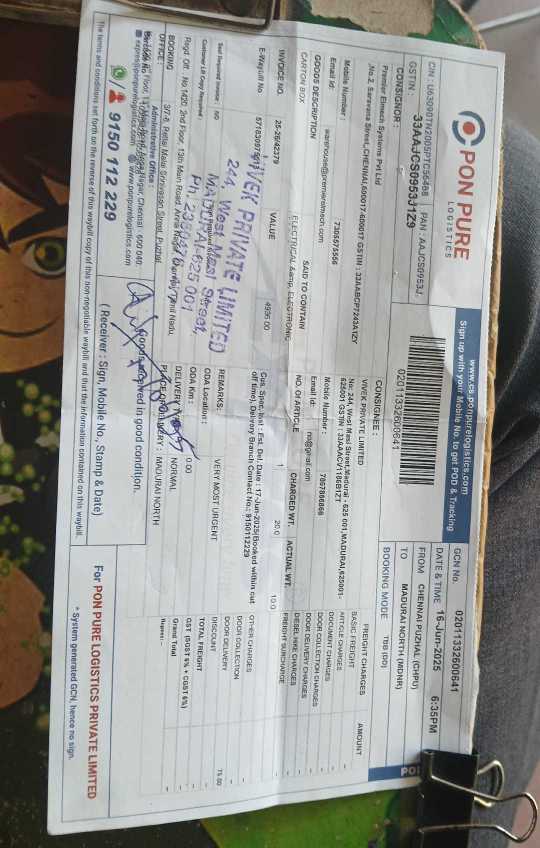 PON PURE
LOGISTICS
www.cs.ponpurelogistics.com
Sign up with your Mobile No. to get POD & Tracking
CIN : U63090TN2005PTC056488 PAN : AAJCS0953J
GSTIN : 33AAJCS0953J1Z9
02011332600641
GCN No. 02011332600641
DATE & TIME 16-Jun-2025 6:35PM
FROM CHENNAI PUZHAL (CHPU)
TO MADURAI NORTH (MDNR)
BOOKING MODE TBB (DD)
CONSIGNOR :
Premier Elmech Systems Pvt Ltd
No.2, Saravana Street, CHENNAI,600017-600017 GSTIN : 33AABCP7243A1ZY
Mobile Number : 7305575556
Email Id: warehouse@premierelmech.com
CONSIGNEE :
VIVEK PRIVATE LIMITED
No: 244, West Masi Street, Madurai - 625 001, MADURAI,625001-
625001 GSTIN : 33AAACV1105B1ZT
Mobile Number : 7657866866
Email Id: no@gmail.com
GOODS DESCRIPTION SAID TO CONTAIN NO. OF ARTICLE CHARGED WT. ACTUAL WT.
CARTON BOX ELECTRICAL &amp; ELECTRONIC 1 20.0 10.0
INVOICE NO. 25-26/42379 VALUE 4936.00
E-Waybill No
Seal Required Invoice : NO
Customer LR Copy Required :
Cus. Spec. Inst : Est. Del. Date : 17-Jun-2025(Booked within cut
off time), Delivery Branch Contact No.: 9150112229
REMARKS: VERY MOST URGENT
ODA Location :
ODA Km : 0.00
DELIVERY TYPE : NORMAL
PLACE OF DELIVERY : MADURAI NORTH
FREIGHT CHARGES AMOUNT
BASIC FREIGHT -
ARTICLE CHARGES -
DOCUMENT CHARGES -
DOOR COLLECTION CHARGES -
DOOR DELIVERY CHARGES -
DIESEL HIKE CHARGES -
FREIGHT SURCHARGE -
OTHER CHARGES -
DOOR COLLECTION -
DOOR DELIVERY -
DISCOUNT 75.00
TOTAL FREIGHT -
GST (SGST 6% + CGST 6%) -
Grand Total -
Rupees : -
VIVEK PRIVATE LIMITED
244, West Masi Street,
MADURAI-625 001
Regd. Off : No.1420, 2nd Floor, 13th Main Road, Anna Nagar, Chennai, Tamil Nadu,
BOOKING
OFFICE : 3/7-8, Rettai Malai Srinivasan Street, Puzhal
Administrative Office :
www.ponpurelogistics.com
9150 112 229
Goods received in good condition.
( Receiver : Sign, Mobile No., Stamp & Date)
For PON PURE LOGISTICS PRIVATE LIMITED
* System generated GCN, hence no sign.
The terms and conditions set forth on the reverse of this waybill copy of this non-negotiable waybill and that the information contained on this waybill.